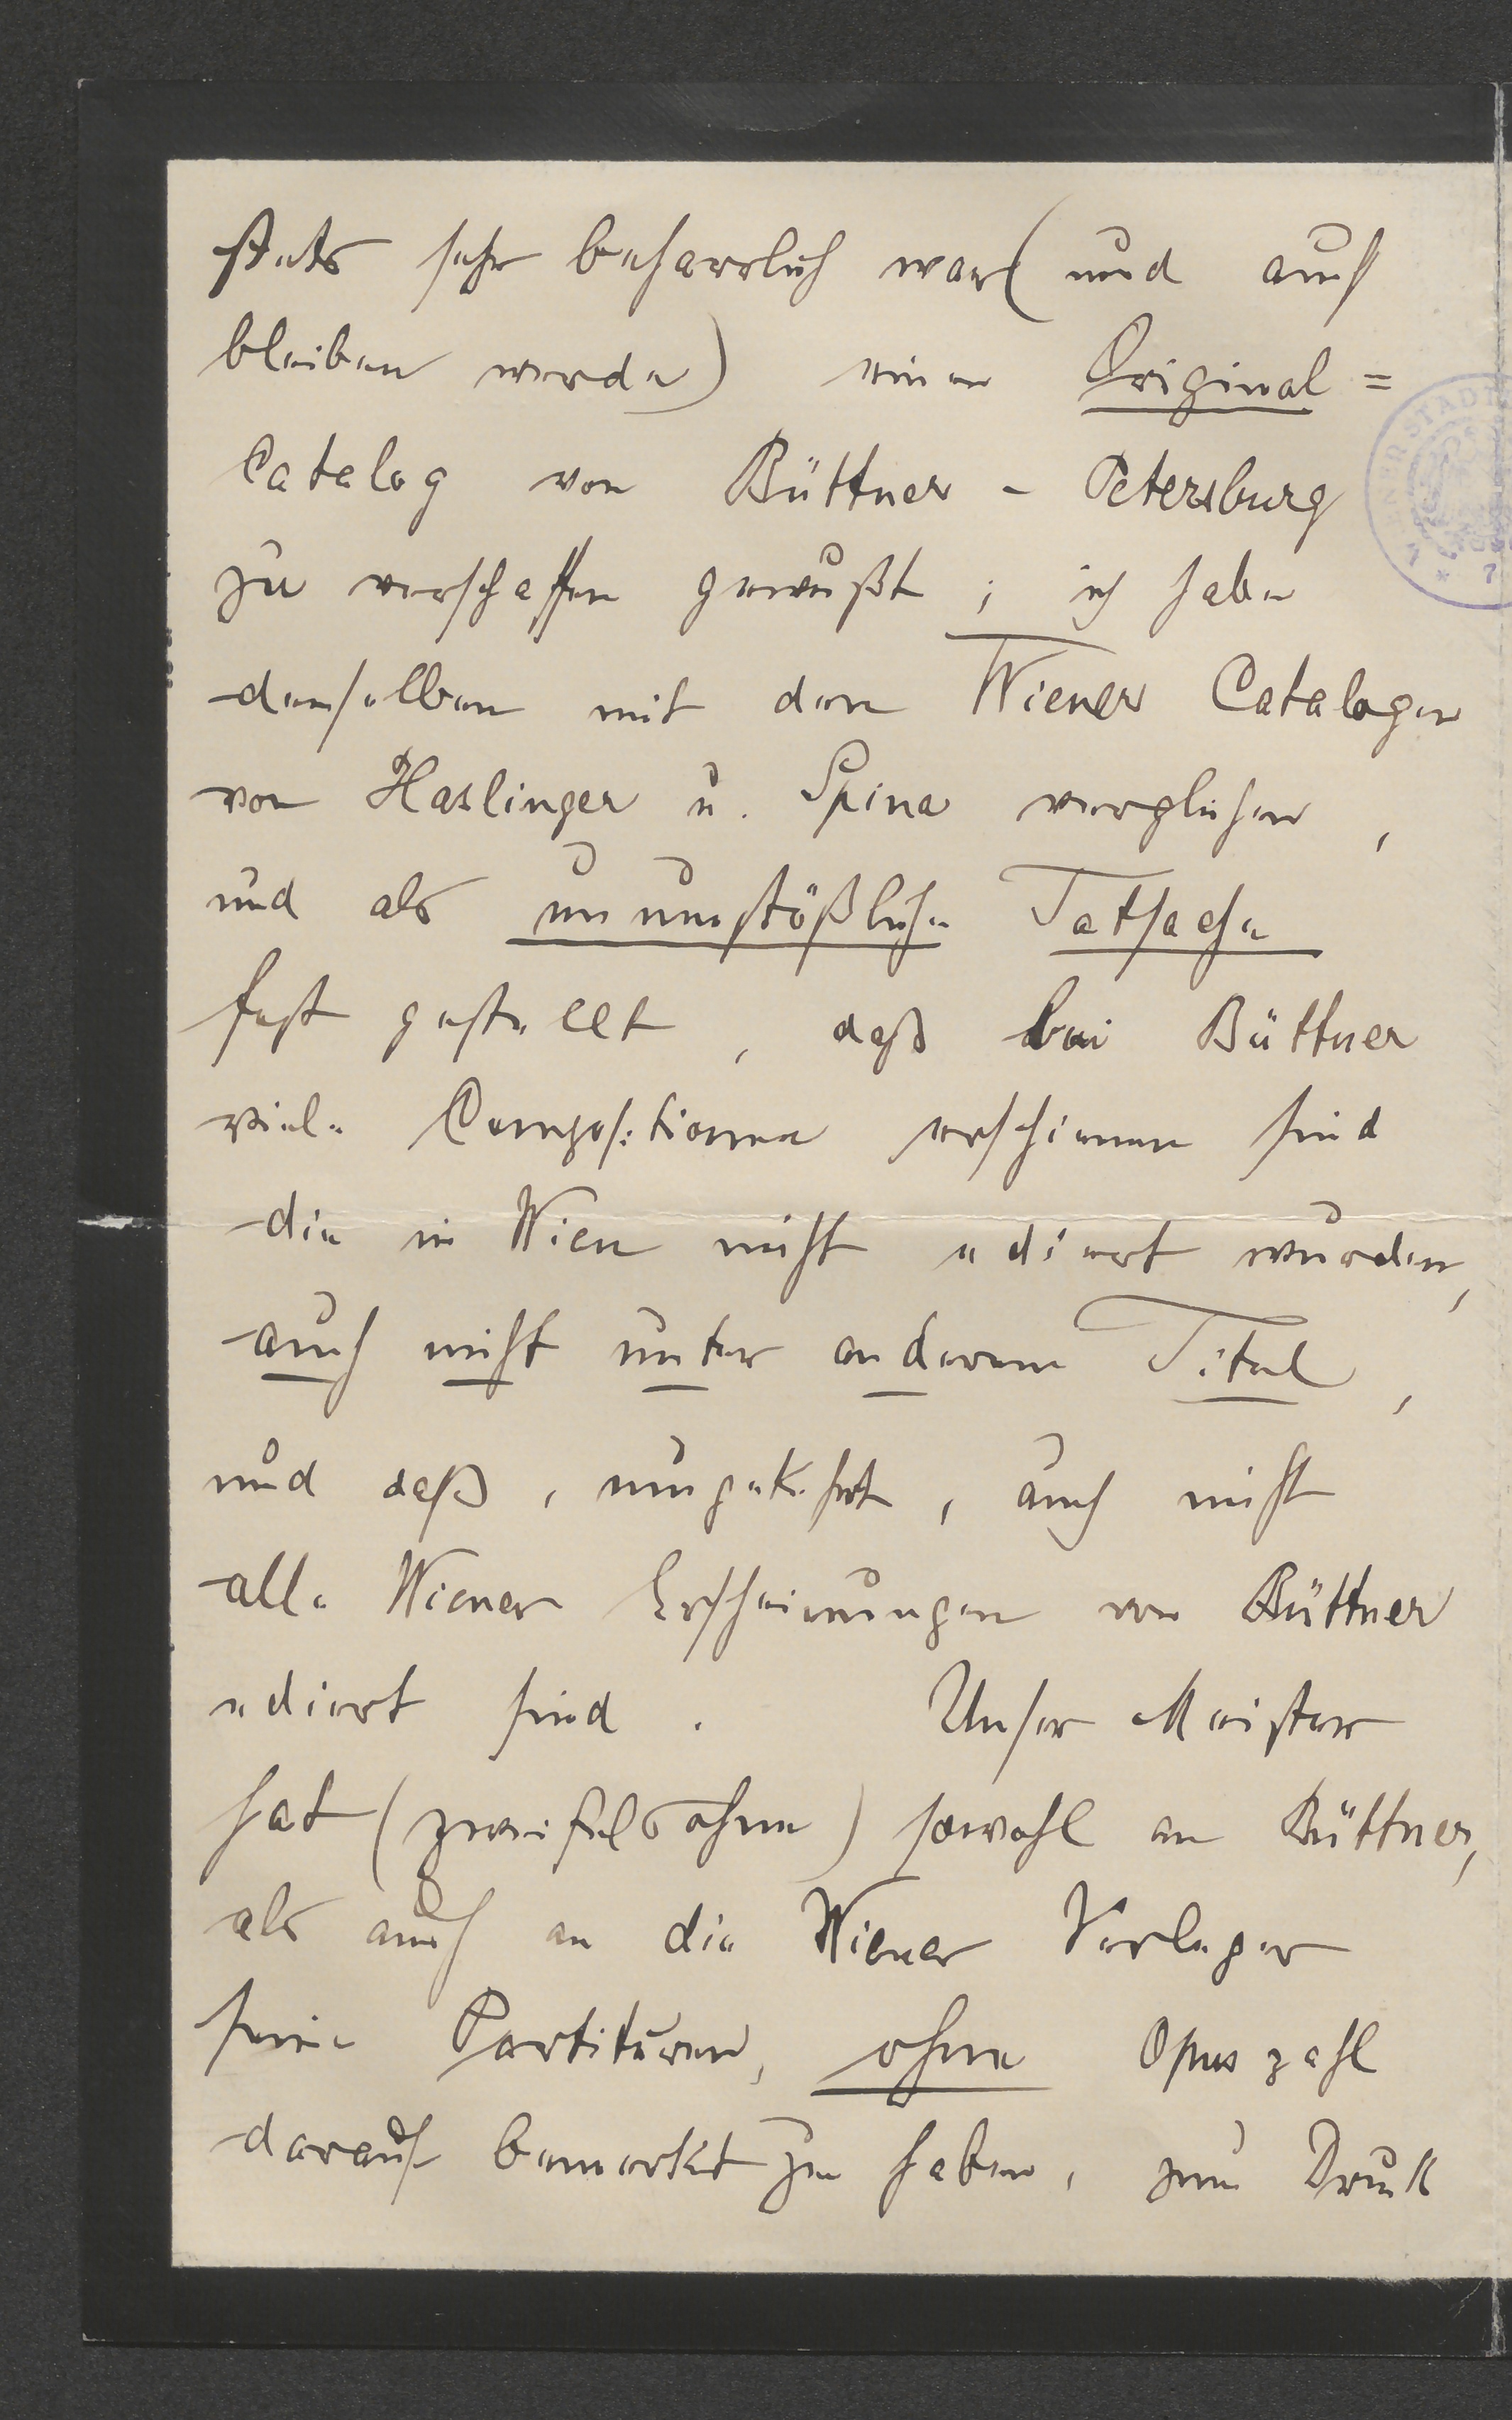 stets sehr beharrlich war (und auch
bleiben werde) einen Original =
Catalog von Büttner - Petersburg
zu verschaffen gewußt; ich habe
denselben mit den Wiener Catalogen
von Haslinger u. Spina verglichen,
und als unumstößliche Tatsache
fest gestellt, daß bei Büttner
viele Compositionen erschienen sind
die in Wien nicht ediert wurden,
auch nicht unter anderem Titel,
und daß, umgekehrt, auch nicht
alle Wiener Erscheinungen von Büttner
ediert sind. Unser Meister
hat (zweifelsohne) sowohl an Büttner,
als auch an die Wiener Verleger
seine Partituren, ohne Opuszahl
darauf bemerkt zu haben, zum Druck